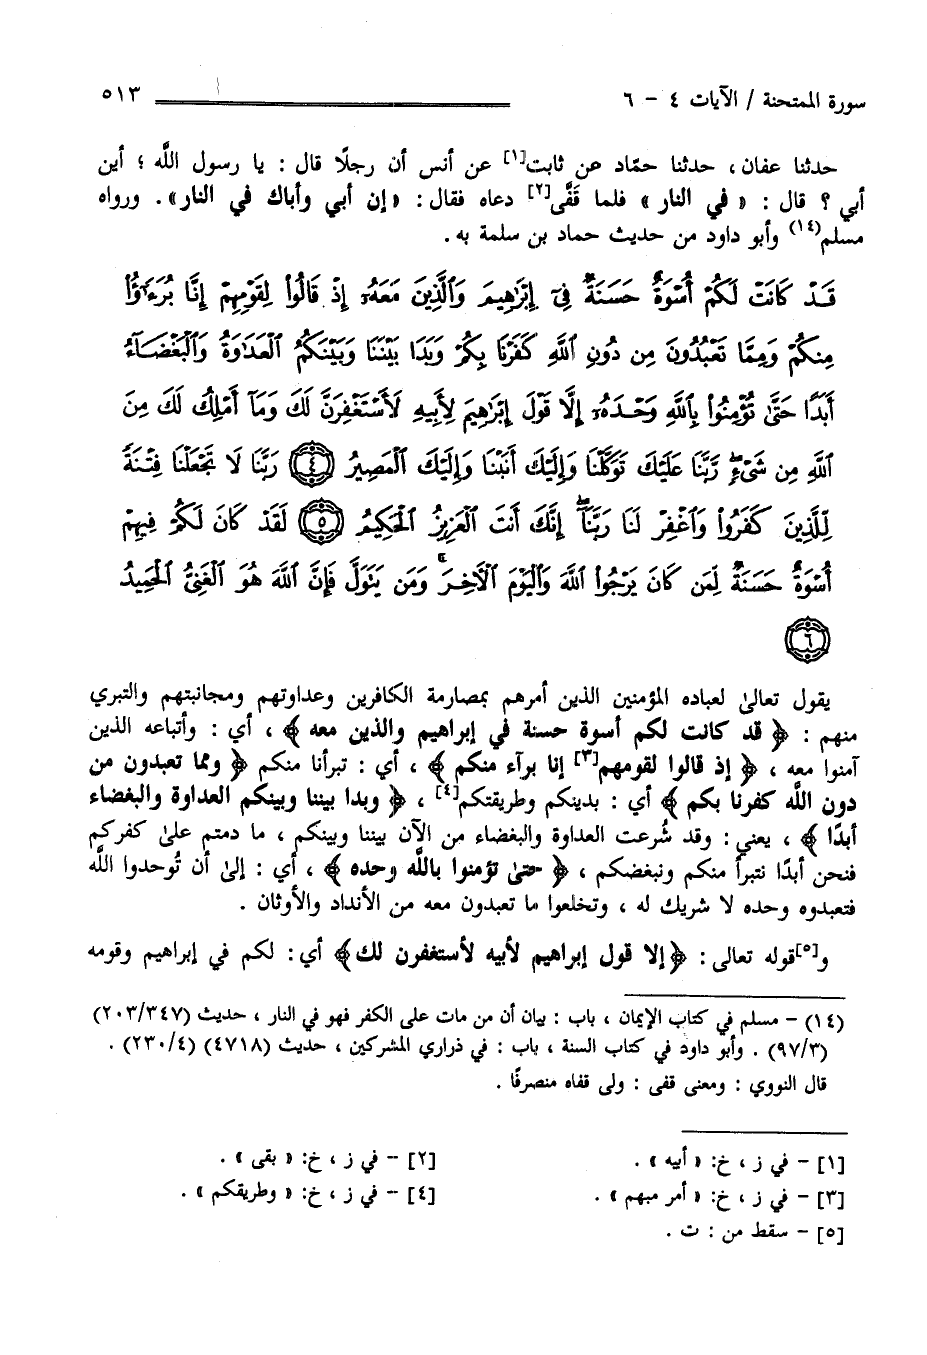 سورة الممتحنة / الآيات ٤ - ٦ ٥١٣
حدثنا عفان ، حدثنا حمّاد عن ثابت[١] عن أنس أن رجلًا قال : يا رسول اللَّه ؛ أين
أبي ؟ قال : « في النار » فلما قَفَّى[٢] دعاه فقال : « إن أبي وأباك في النار» . ورواه
مسلم(١٤) وأبو داود من حديث حماد بن سلمة به .
قَدْ كَانَتْ لَكُمْ أُسْوَةٌ حَسَنَةٌ فِىٓ إِبْرَٰهِيمَ وَٱلَّذِينَ مَعَهُۥٓ إِذْ قَالُوا۟ لِقَوْمِهِمْ إِنَّا بُرَءَٰٓؤُا۟
مِنكُمْ وَمِمَّا تَعْبُدُونَ مِن دُونِ ٱللَّهِ كَفَرْنَا بِكُمْ وَبَدَا بَيْنَنَا وَبَيْنَكُمُ ٱلْعَدَٰوَةُ وَٱلْبَغْضَآءُ
أَبَدًا حَتَّىٰ تُؤْمِنُوا۟ بِٱللَّهِ وَحْدَهُۥٓ إِلَّا قَوْلَ إِبْرَٰهِيمَ لِأَبِيهِ لَأَسْتَغْفِرَنَّ لَكَ وَمَآ أَمْلِكُ لَكَ مِنَ
ٱللَّهِ مِن شَىْءٍ ۖ رَّبَّنَا عَلَيْكَ تَوَكَّلْنَا وَإِلَيْكَ أَنَبْنَا وَإِلَيْكَ ٱلْمَصِيرُ ﴿٤﴾ رَبَّنَا لَا تَجْعَلْنَا فِتْنَةً
لِّلَّذِينَ كَفَرُوا۟ وَٱغْفِرْ لَنَا رَبَّنَآ ۖ إِنَّكَ أَنتَ ٱلْعَزِيزُ ٱلْحَكِيمُ ﴿٥﴾ لَقَدْ كَانَ لَكُمْ فِيهِمْ
أُسْوَةٌ حَسَنَةٌ لِّمَن كَانَ يَرْجُوا۟ ٱللَّهَ وَٱلْيَوْمَ ٱلْءَاخِرَ ۚ وَمَن يَتَوَلَّ فَإِنَّ ٱللَّهَ هُوَ ٱلْغَنِىُّ ٱلْحَمِيدُ
﴿٦﴾
يقول تعالىٰ لعباده المؤمنين الذين أمرهم بمصارمة الكافرين وعداوتهم ومجانبتهم والتبري
منهم : ﴿ قد كانت لكم أسوة حسنة في إبراهيم والذين معه ﴾ ، أي : وأتباعه الذين
آمنوا معه ، ﴿ إذ قالوا لقومهم[٣] إنا برآء منكم ﴾ ، أي : تبرأنا منكم ﴿ ومما تعبدون من
دون اللَّه كفرنا بكم ﴾ أي : بدينكم وطريقتكم[٤] ، ﴿ وبدا بيننا وبينكم العداوة والبغضاء
أبدًا ﴾ ، يعني : وقد شُرعت العداوة والبغضاء من الآن بيننا وبينكم ، ما دمتم علىٰ كفركم
فنحن أبدًا نتبرأ منكم ونبغضكم ، ﴿ حتىٰ تؤمنوا باللَّه وحده ﴾ ، أي : إلىٰ أن تُوحدوا اللَّه
فتعبدوه وحده لا شريك له ، وتخلعوا ما تعبدون معه من الأنداد والأوثان .
و[٥]قوله تعالى : ﴿ إلا قول إبراهيم لأبيه لأستغفرن لك ﴾ أي : لكم في إبراهيم وقومه
(١٤) - مسلم في كتاب الإيمان ، باب : بيان أن من مات على الكفر فهو في النار ، حديث (٢٠٣/٣٤٧)
(٩٧/٣) . وأبو داود في كتاب السنة ، باب : في ذراري المشركين ، حديث (٤٧١٨) (٢٣٠/٤) .
قال النووي : ومعنى قفى : ولى قفاه منصرفًا .
[١] - في ز ، خ: « أبيه » . [٢] - في ز ، خ: « بقى » .
[٣] - في ز ، خ: « أمر مبهم » . [٤] - في ز ، خ: « وطريقكم » .
[٥] - سقط من : ت .